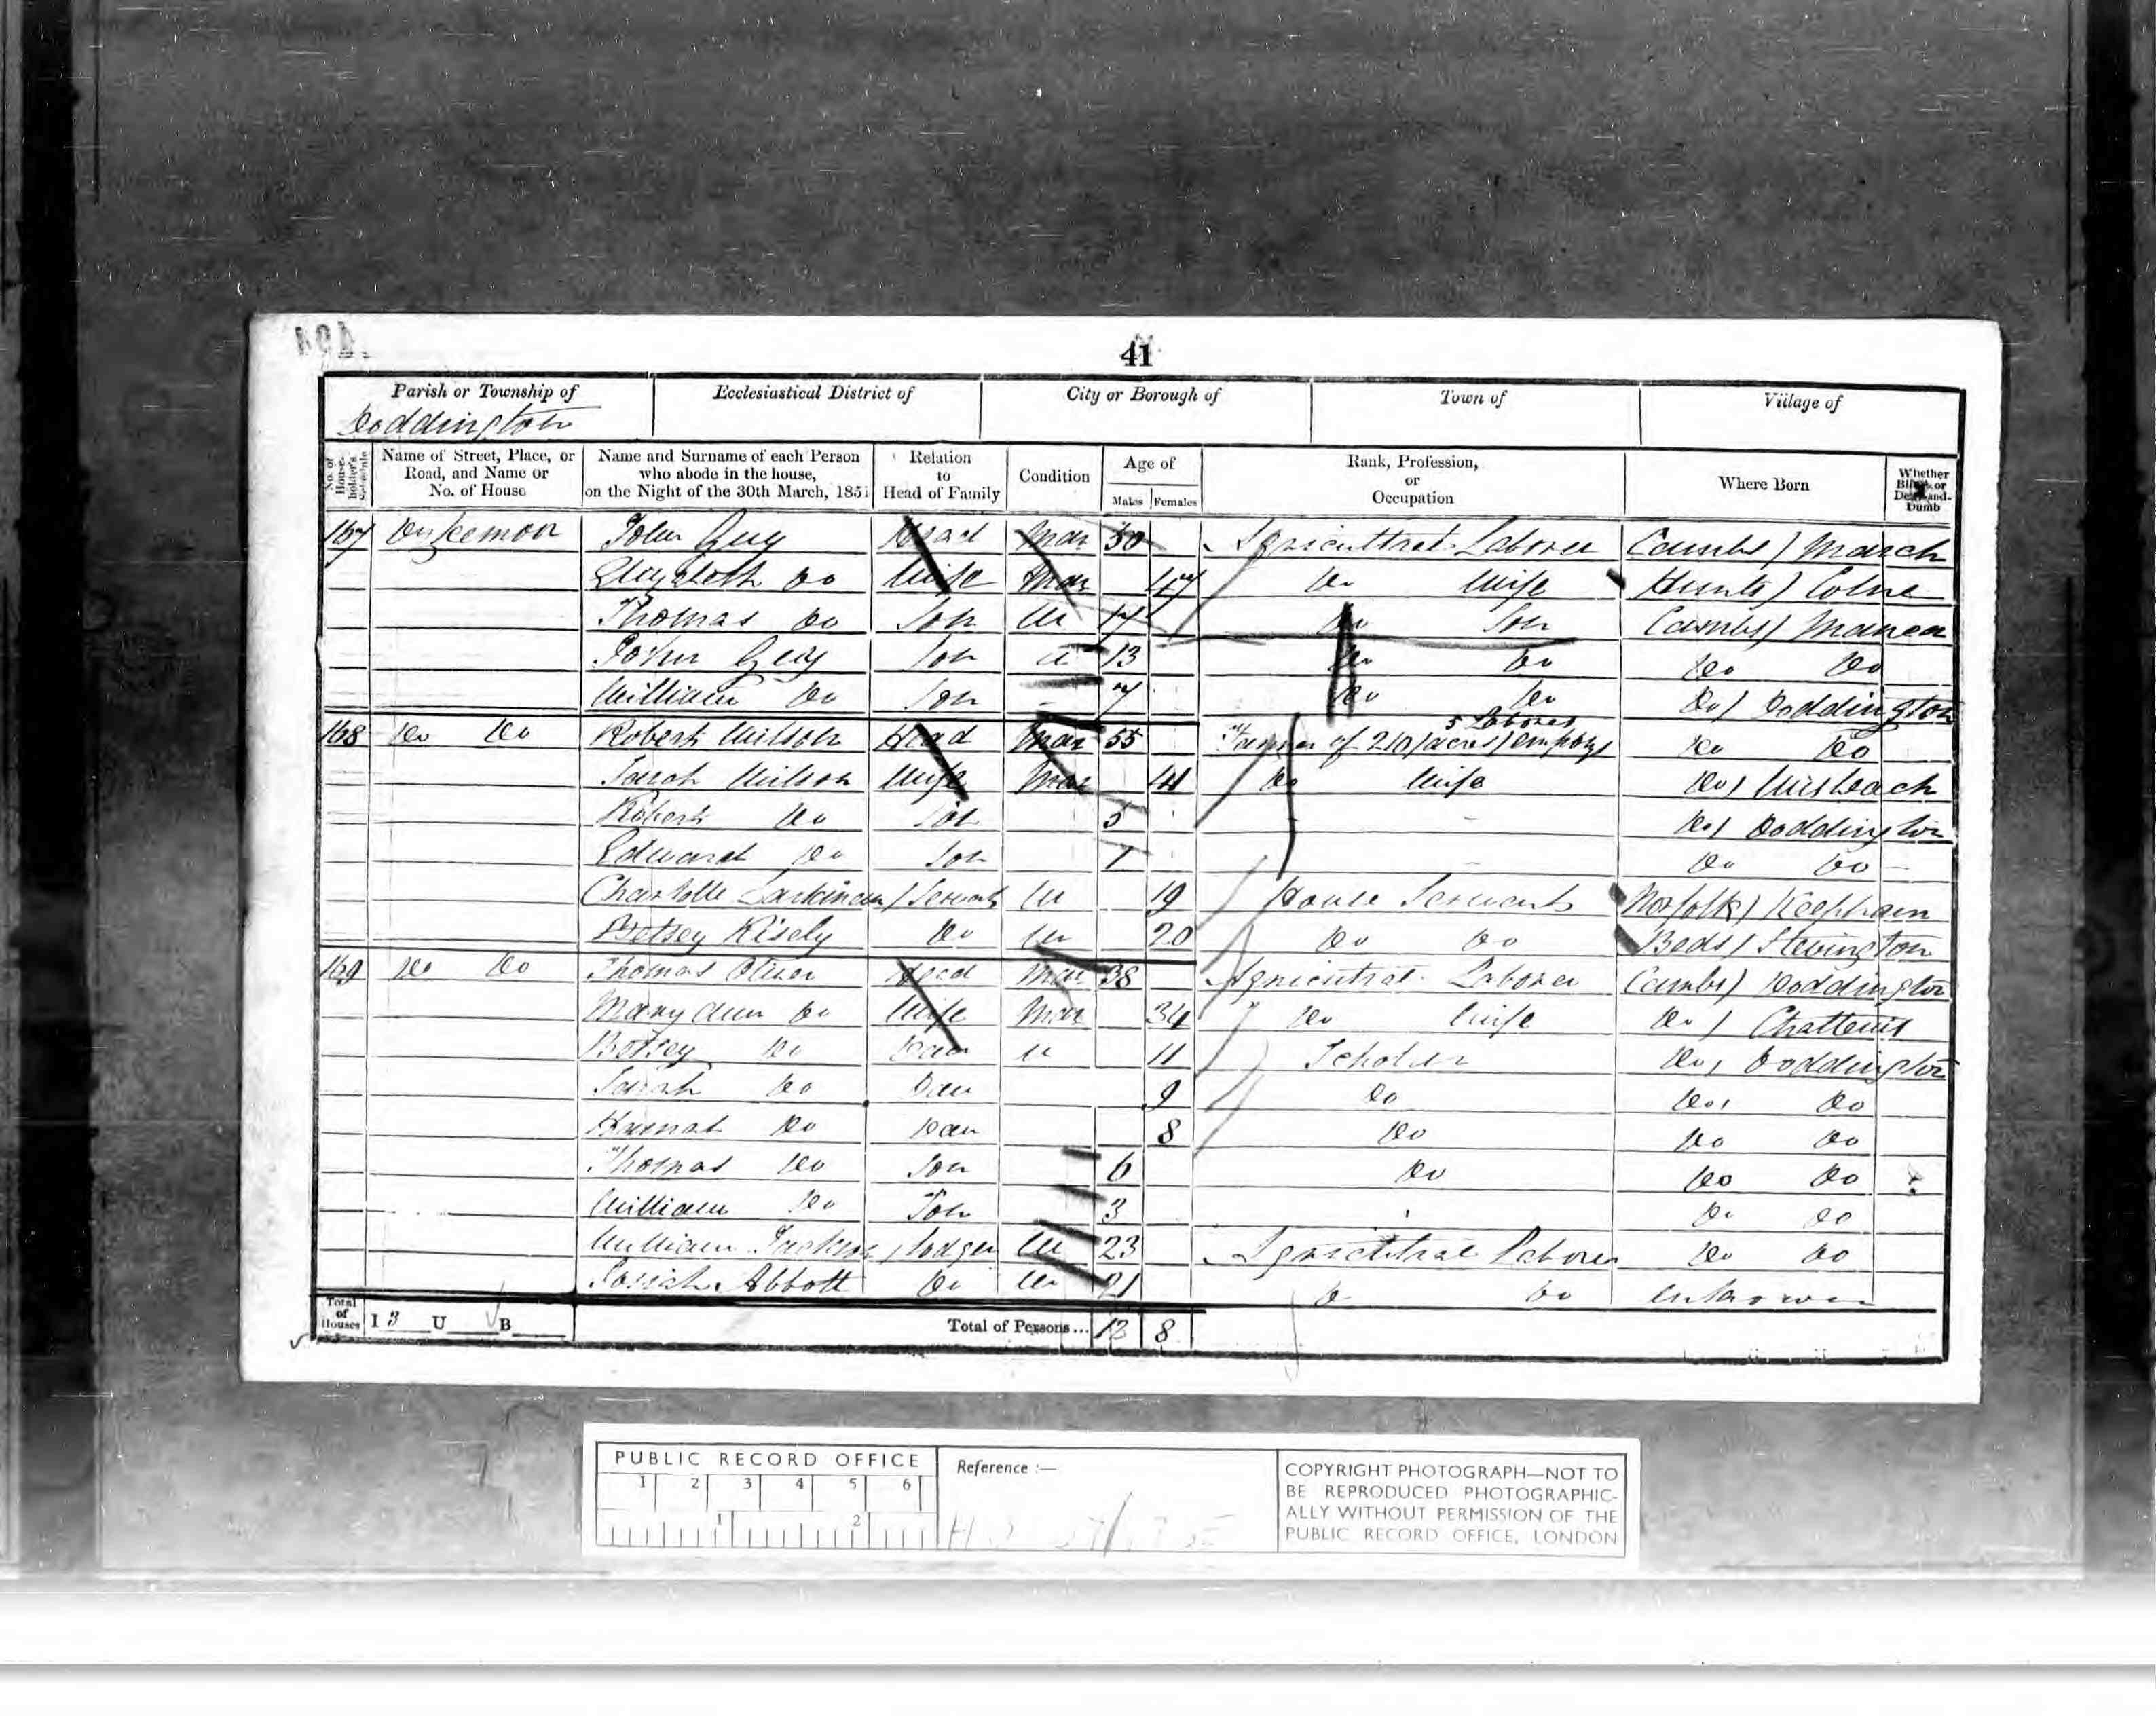 41
Parish or Township of Ecclesiastical District of City or Borough of Town of Village of
Doddington
No. of Householder's Schedule Name of Street, Place, or Road, and Name or No. of House Name and Surname of each Person who abode in the house, on the Night of the 30th March, 1851 Relation to Head of Family Condition Age of Males Females Rank, Profession, or Occupation Where Born Whether Blind, or Deaf-and-Dumb
167 John Guy Head Mar 50 Agricultral Laborer Cambs / March
Elizabeth Do Wife Mar 47 Do Wife Hunts / Colne
Thomas Do Son Un 17 Do Son Cambs / Manea
John Guy Son U 13 Do Do Do Do
William Do Son - 7 Do Do Do / Doddington
168 Do Do Robert Wilson Head Mar 55 Farmer of 210 / acres / employs 5 Labores Do Do
Sarah Wilson Wife Mar 41 Do Wife Do / Wisbeach
Robert Do Son 5 - Do / Doddington
Edward Do Son 1 - Do Do
Charlotte / Servant Un 19 House Servant Norfolk / Reepham
Betsey Risely Do Un 20 Do Do Beds / Stevington
169 Do Do Thomas Oliver Head Mar 38 Agricultral Laborer Cambs / Doddington
Mary Ann Do Wife Mar 34 Do Wife Do / Chatteris
Betsey Do Dau U 11 Scholar Do / Doddington
Sarah Do Dau 9 Do Do / Do
Hannah Do Dau 8 Do Do Do
Thomas Do Son 6 Do Do Do
William Do Son 3 Do Do
William Jackson / Lodger Un 23 Agricultral Laborer Do Do
Josiah Abbott Do Un 21 Do Do Unknown
Total of Houses I 3 U B Total of Persons... 12 8
PUBLIC RECORD OFFICE
1 2 3 4 5 6
1 2
Reference :—
COPYRIGHT PHOTOGRAPH—NOT TO
BE REPRODUCED PHOTOGRAPHIC-
ALLY WITHOUT PERMISSION OF THE
PUBLIC RECORD OFFICE, LONDON